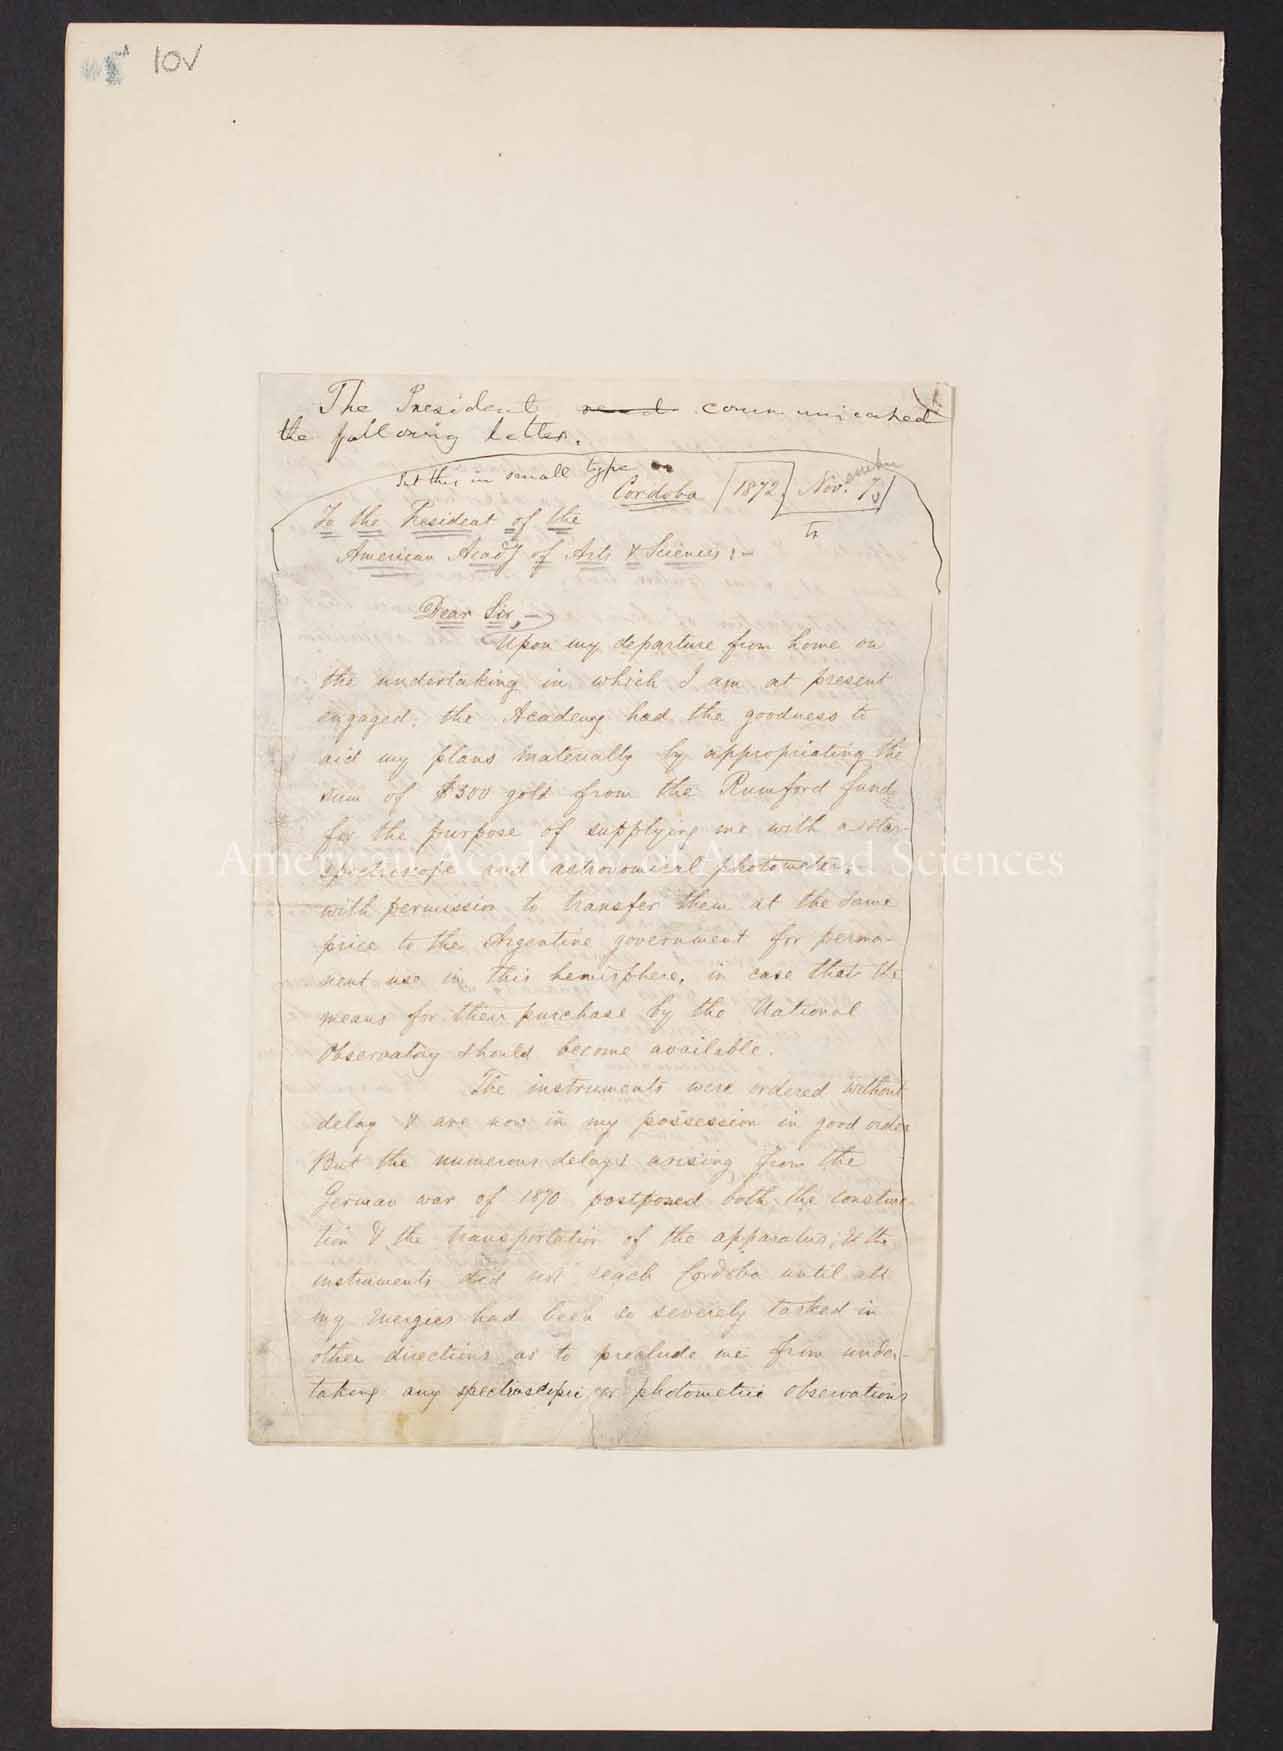 10V
The President read communicated
the following letter.
Set this in small type
Cordoba 1872, Nov.ember 7,
tr
To the President of the
American Acady of Arts & Sciences:—
Dear Sir,—
Upon my departure from home on
the undertaking in which I am at present
engaged, the Academy had the goodness to
aid my plans materially by appropriating the
sum of $500 gold from the Rumford fund
for the purpose of supplying me with a star-
spectroscope and astronomical photometer,
with permission to transfer them at the same
price to the Argentine government for perma-
nent use in this hemisphere, in case that the
means for their purchase by the National
Observatory should become available.
The instruments were ordered without
delay & are now in my possession in good order
But the numerous delays arising from the
German war of 1870 postponed both the construc-
tion & the transportation of the apparatus, & the
instruments did not reach Cordoba until all
my energies had been so severely tasked in
other directions as to preclude me from under-
taking any spectroscopic or photometric observations
American Academy of Arts and Sciences